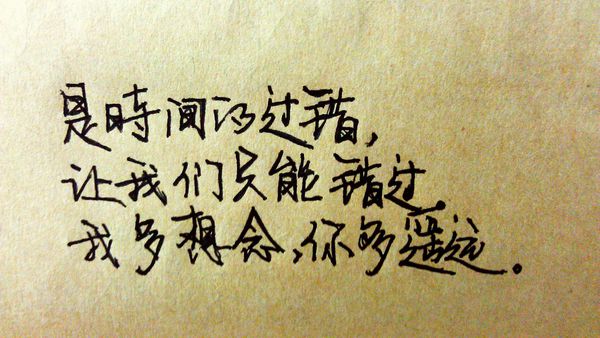 是時间的过错,
让我们只能错过.
我多想念,你多遥远。